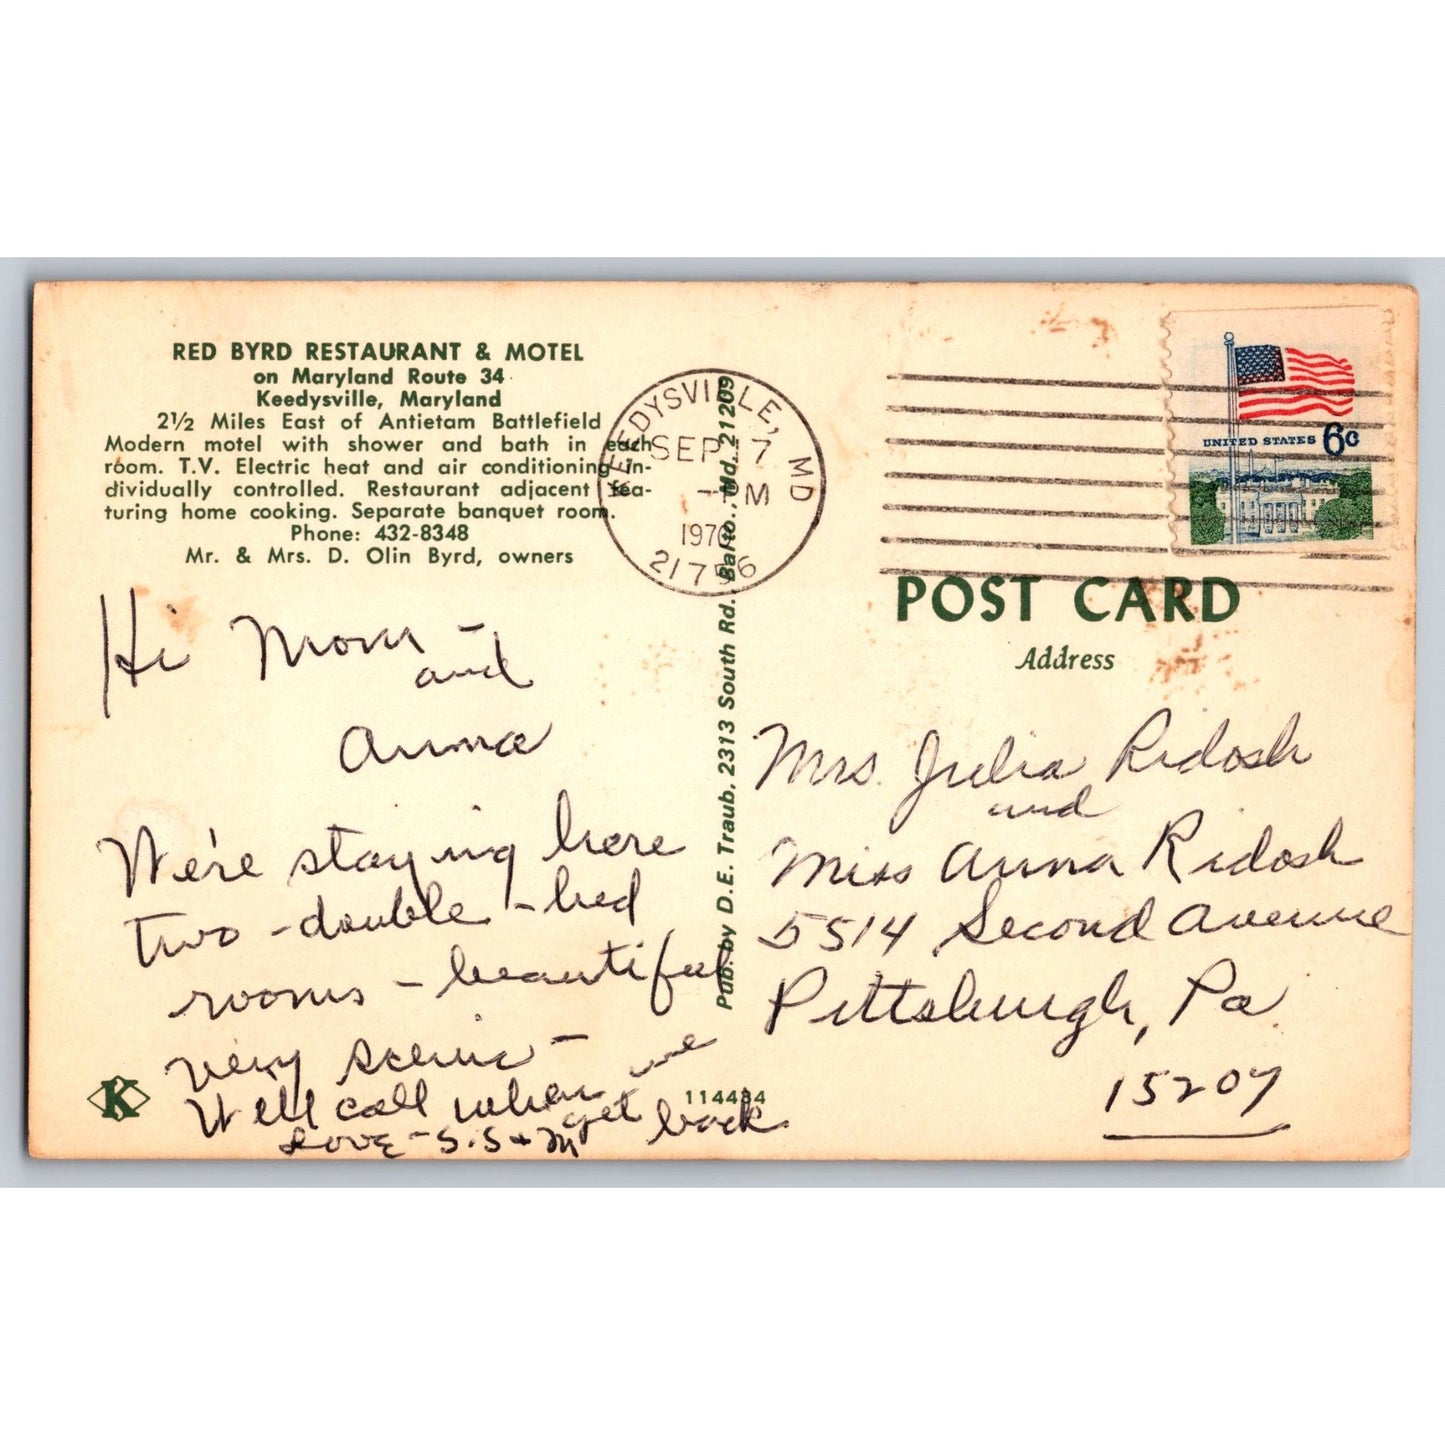 RED BYRD RESTAURANT & MOTEL
on Maryland Route 34
Keedysville, Maryland
2½ Miles East of Antietam Battlefield
Modern motel with shower and bath in each
room. T.V. Electric heat and air conditioning in-
dividually controlled. Restaurant adjacent fea-
turing home cooking. Separate banquet room.
Phone: 432-8348
Mr. & Mrs. D. Olin Byrd, owners
Hi Mom -
and
Anna
We're staying here
two - double - bed
rooms - beautiful
very scenic -
We'll call when we
get back
Love - S. S + M
K
114434
Pub. by D. E. Traub. 2313 South Rd. Balto., Md. 21209
KEEDYSVILLE, MD
SEP 7
M
1970
21756
UNITED STATES 6c
POST CARD
Address
Mrs. Julia Ridosh
and
Miss Anna Ridosh
5514 Second Avenue
Pittsburgh, Pa
15207